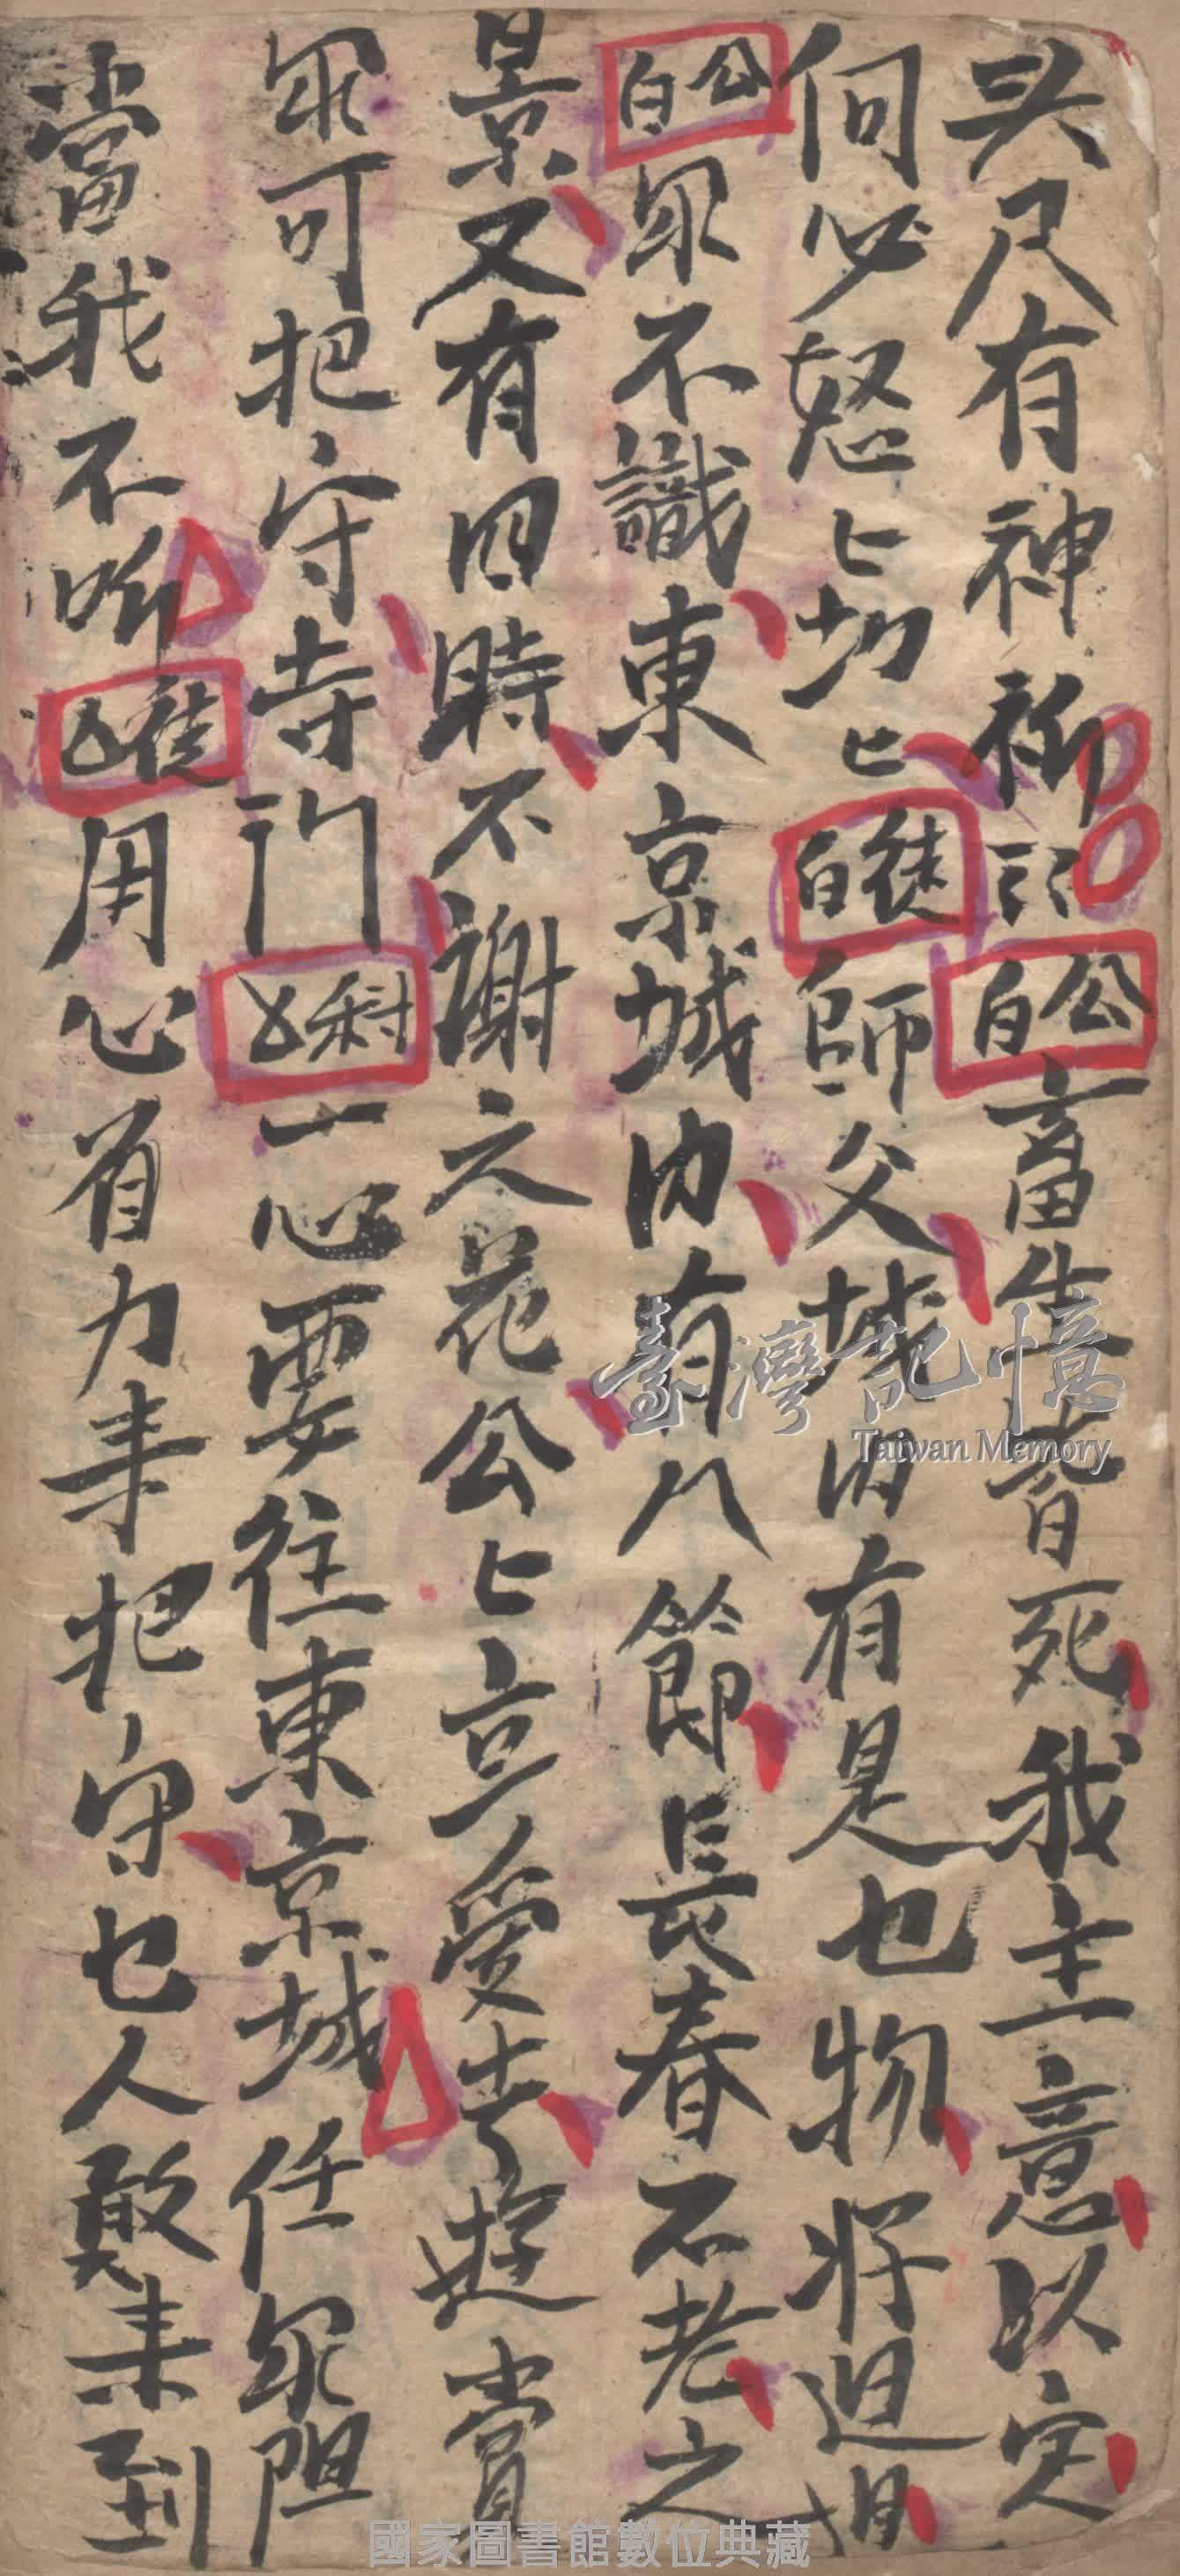 头尺有神祈 公白 畜生皆死我主意以定
何必怒〻切〻 徒白 師父城内有是乜物将迌
公白 汆不識東京城内有八節長春不老之
景又有四時不謝之花公〻豆受去遊賞
汆可把守寺門 科 一心要往東京城任汆阻
當我不听 徒 用心着力来把守乜人敢来到
臺灣記憶
Taiwan Memory
國家圖書館數位典藏